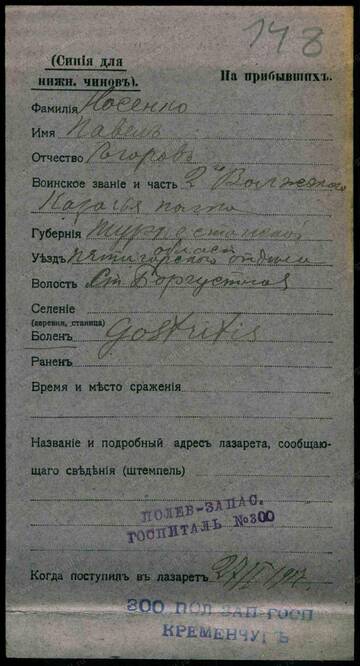 148
(Синія для
нижн. чиновъ).
На прибывшихъ.
Фамилія Носенко
Имя Павелъ
Отчество Егоровъ
Воинское званіе и часть 2й Волжскаго
Казачья полка
Губернія
области
Уѣздъ Пятигорскаго отдѣла
Волость Ст Боргустная
Селеніе
(деревня, станица)
Боленъ Gastritis
Раненъ
Время и мѣсто сраженія
Названіе и подробный адресъ лазарета, сообщаю-
щаго свѣдѣнія (штемпель)
ПОЛЕВ-ЗАПАС.
ГОСПИТАЛЬ №300
Когда поступилъ въ лазаретъ 27/II 1917.
300 ПОЛ ЗАП-ГОСП
КРЕМЕНЧУГЪ